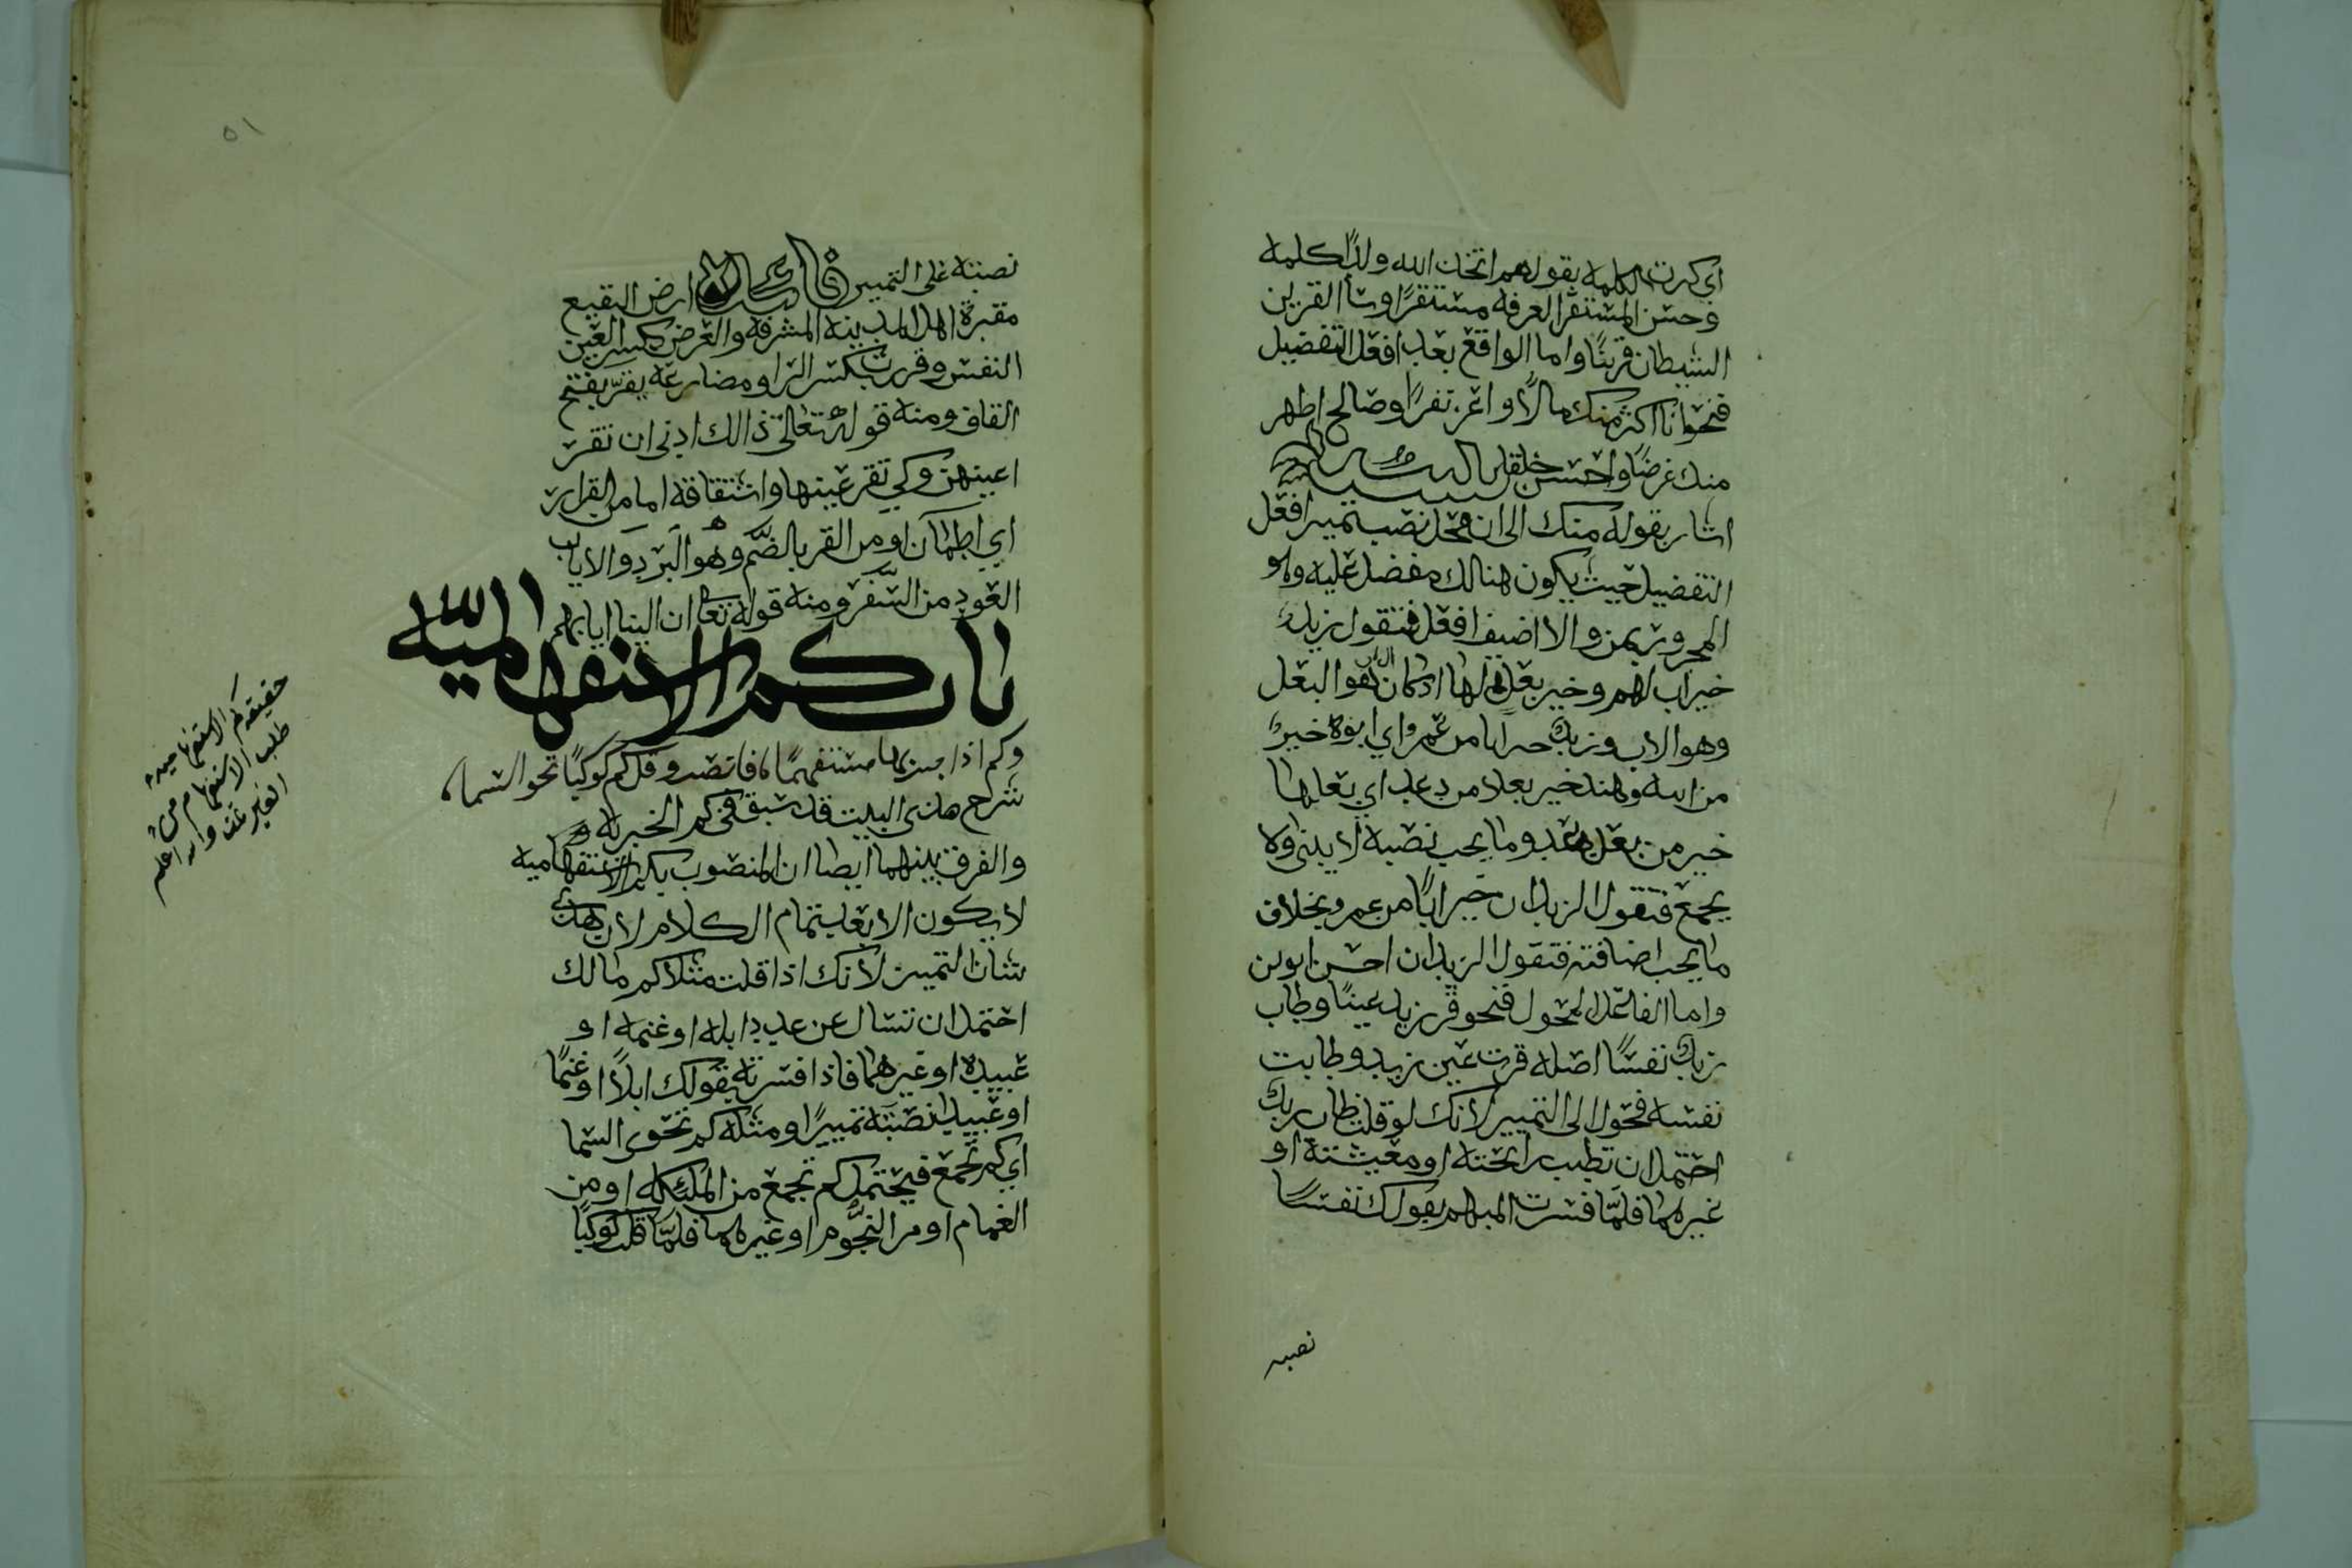 اي كبرت الكلمة بقولهم اتخذ الله ولدا كلمة
وحسن المستقر الغرفة مستقرًا وسأ القرين
الشيطان قرينًا واما الواقع بعد افعل التفضيل
فنحو انا اكثر منك مالًا واعز نفرًا وصالح اطهر
منك عرضًا واحسن خلقا
اشار بقوله منك الى ان محل نصب تمييز افعل
التفضيل حيث يكون هنالك مفضل عليه وهو
المجرور بمن والا اضيف افعل فتقول زيدٌ
خير اب لهم وخير بعل لها اذ كان البعل
وهو الاب وزيدٌ خير ابا من عمرو اي ابوه خيرٌ
من ابيه وهند خير بعلا من دعد اي بعلها
خير من بعل دعد وما يجب نصبه لا يثنى ولا
يجمع فتقول الزيدان خير ابًا من عمرو بخلاف
ما يجب اضافته فتقول الزيدان احسن ابوين
واما الفاعل المحول فنحو قر زيد عينًا وطاب
زيدٌ نفسًا اصله قرت عين زيد وطابت
نفسه فحول الى التمييز لانك لو قلت طاب زيدٌ
احتمل ان تطيب رائحته او معيشته او
غيرهما فلمّا فسرت المبهم بقولك نفسًا
نصبته
٥١
نصبته على التمييز فائدة ارض البقيع
مقبرة اهل المدينة المشرفة والعرض بكسر العين
النفس وقررت بكسر الرا ومضارعه يقرّ بفتح
القاف ومنه قوله تعالى ذالك ادنى ان تقر
اعينهن وكي تقر عينها واشتقاقه اما من القرار
اي اطمأن او من القر بالضّم وهو البرد والاياب
العود من السّفر ومنه قوله تعالى ان الينا ايابهم
باب كم الاستفهامية
وكم اذا جئت بها مستفهمًا فانصب وقل كم كوكبًا تحو السما
شرح هذى البيت قد سبق في كم الخبرية
والفرق بينهما ايضا ان المنصوب بكم الاستفهامية
لا يكون الا بعد تمام الكلام لان هذى
شان التمييز لانك اذا قلت مثلا كم مالك
احتمل ان تسال عن عدد ابله او غنمه او
عبيده او غيرهما فاذا فسرته بقولك ابلًا او غنمًا
او عبيدا نصبته تمييزًا ومثله كم تحوى السما
اي كم تجمع فيحتمل كم تجمع من الملئكة او من
الغمام او من النجوم او غيرهما فلمّا قلت كوكبًا
حقيقة كم الاستفهامية
طلب الاستفهام من
الغير والله اعلم